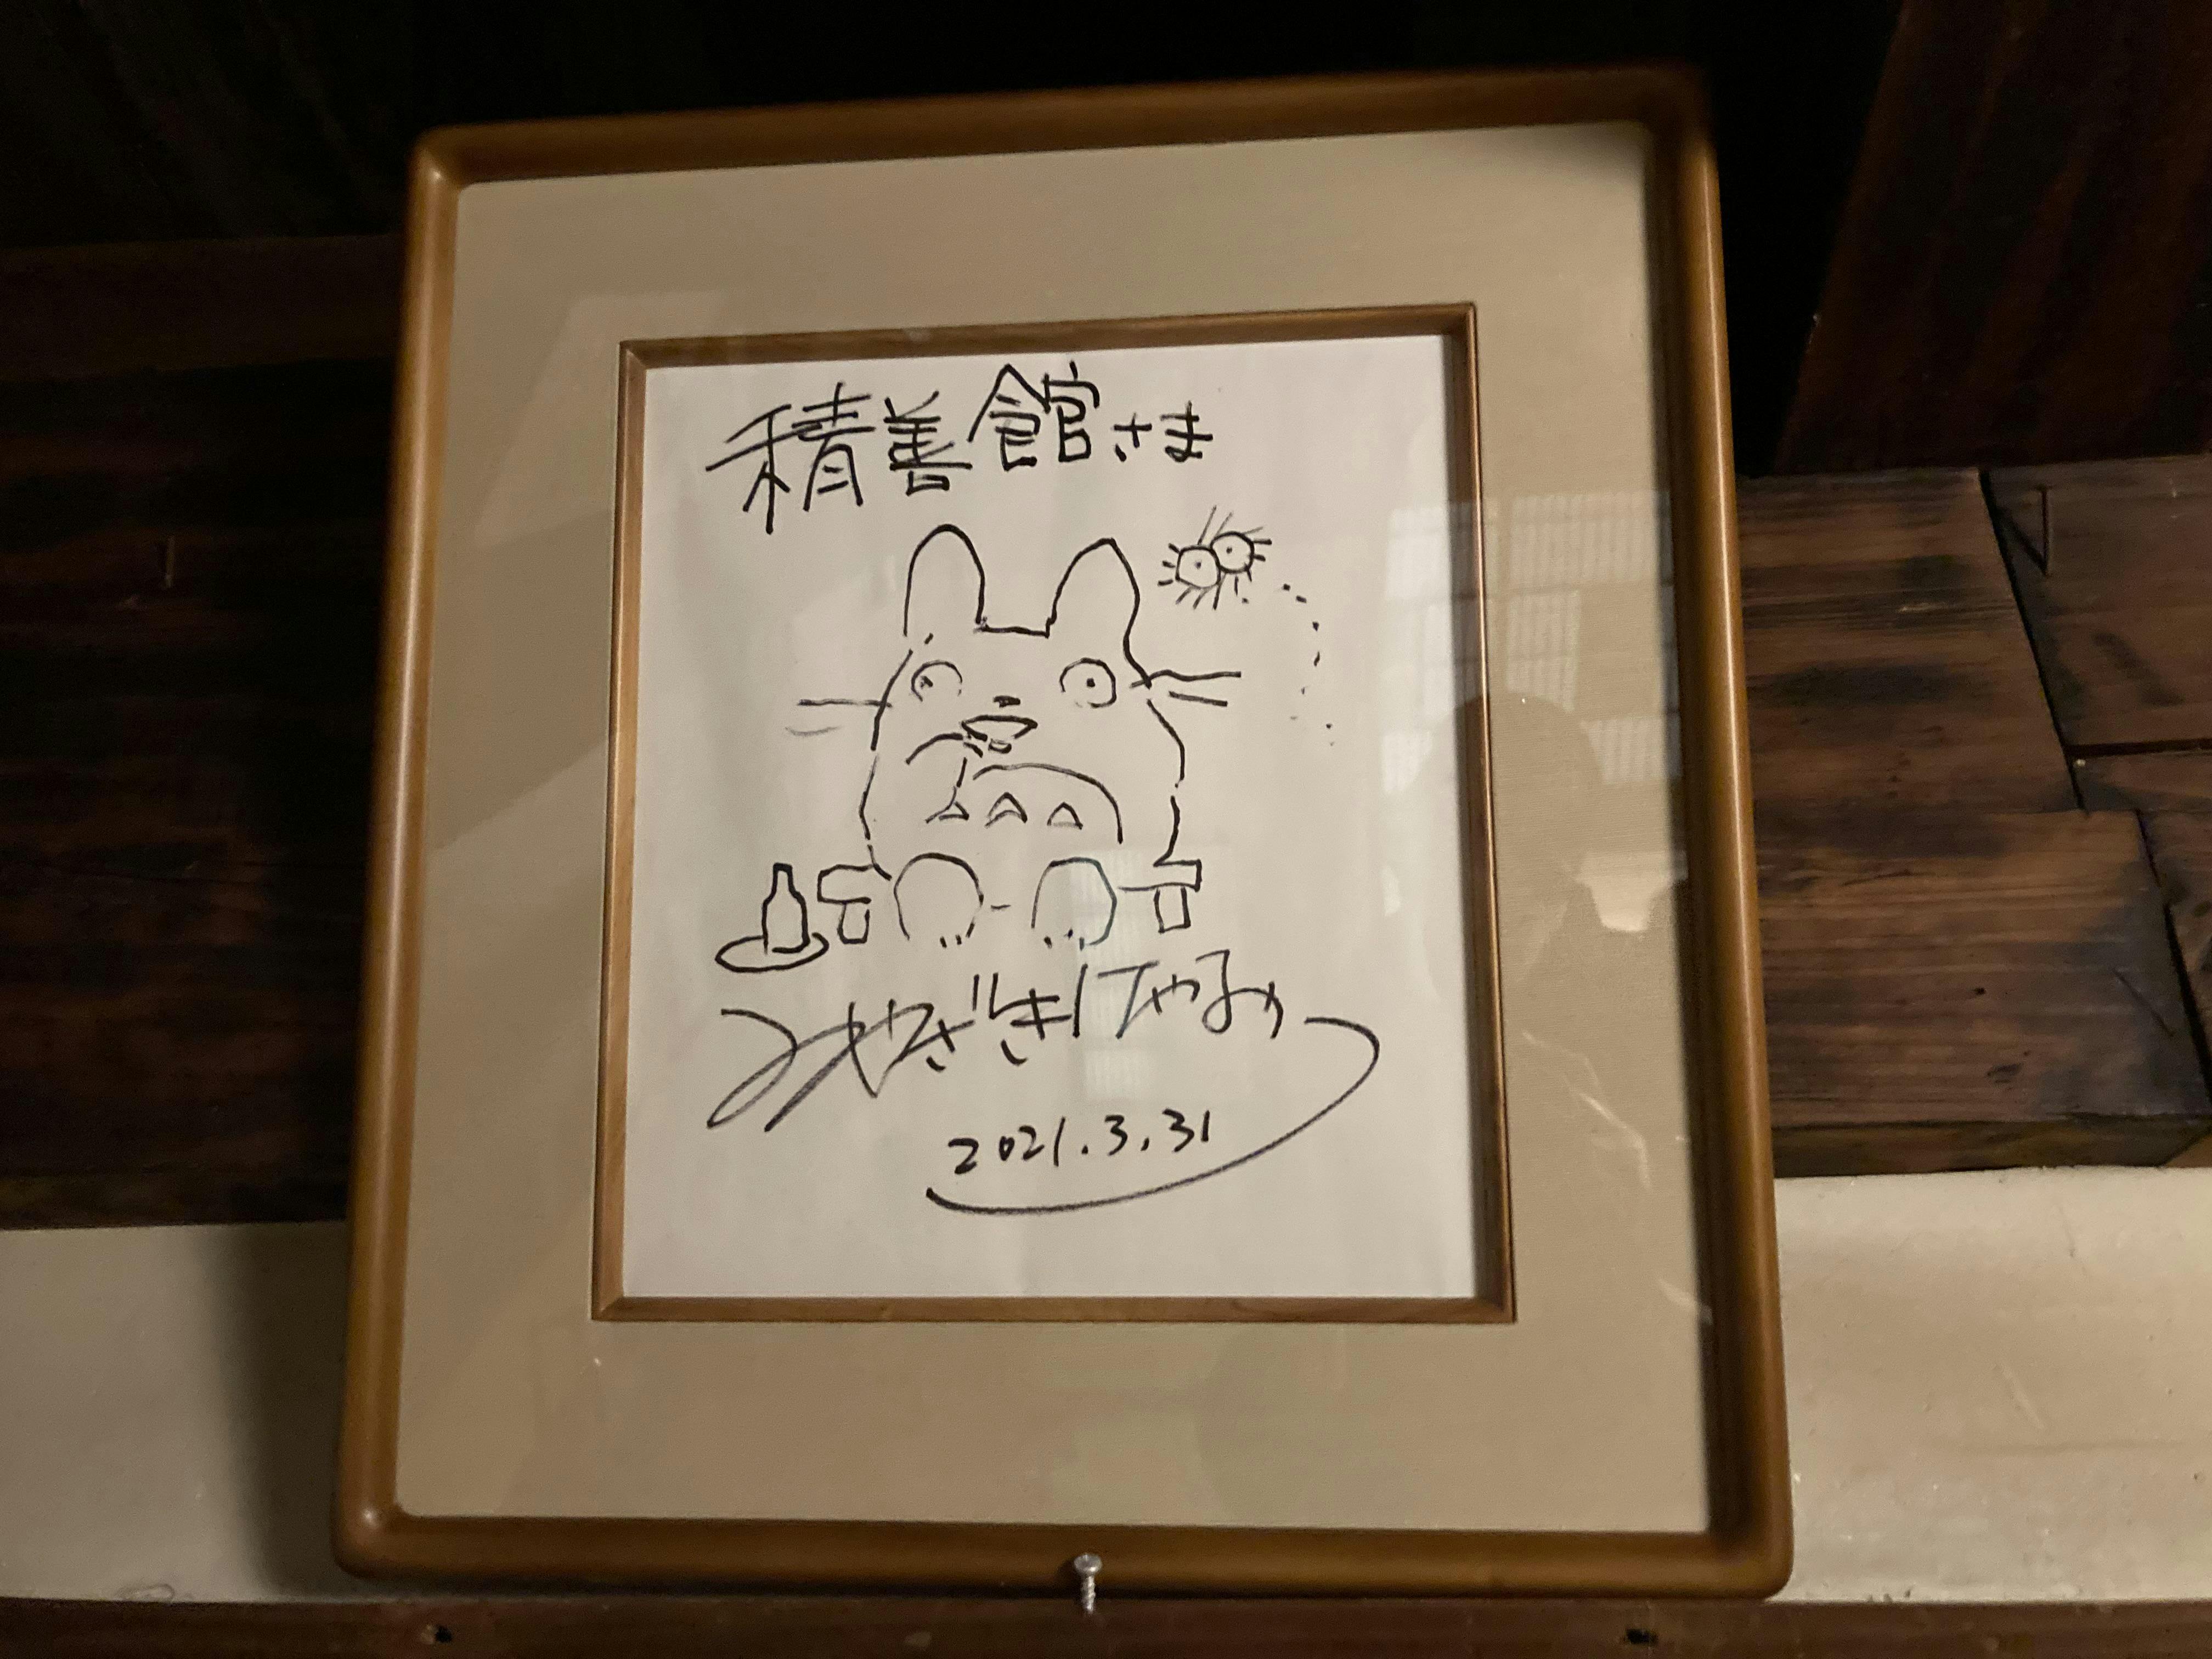 積善館さま
みやざきはやお
2021.3.31